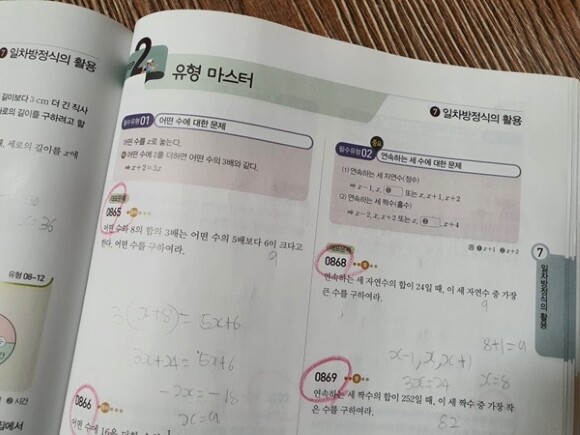 7 일차방정식의 활용
길이보다 3 cm 더 긴 직사
로의 길이를 구하려고 할
, 세로의 길이를 x에
x=36
유형 08-12
2 시간
2
유형 마스터
7 일차방정식의 활용
필수유형 01 어떤 수에 대한 문제
어떤 수를 x로 놓는다.
어떤 수에 2를 더하면 어떤 수의 3배와 같다.
⇒ x+2=3x
0865
어떤 수와 8의 합의 3배는 어떤 수의 5배보다 6이 크다고
한다. 어떤 수를 구하여라.
9
3(x+8)=5x+6
3x+24=5x+6
-2x=-18
x=9
0866
어떤 수에 16을
중요
필수유형 02 연속하는 세 수에 대한 문제
(1) 연속하는 세 자연수(정수)
⇒ x-1, x, ❶ 또는 x, x+1, x+2
(2) 연속하는 세 짝수(홀수)
⇒ x-2, x, x+2 또는 x, ❷, x+4
답 ❶ x+1 ❷ x+2
0868
연속하는 세 자연수의 합이 24일 때, 이 세 자연수 중 가장
큰 수를 구하여라.
9
8+1=9
x-1, x, x+1
3x=24 x=8
0869
연속하는 세 짝수의 합이 252일 때, 이 세 짝수 중 가장 작
은 수를 구하여라.
82
7
일차방정식의 활용